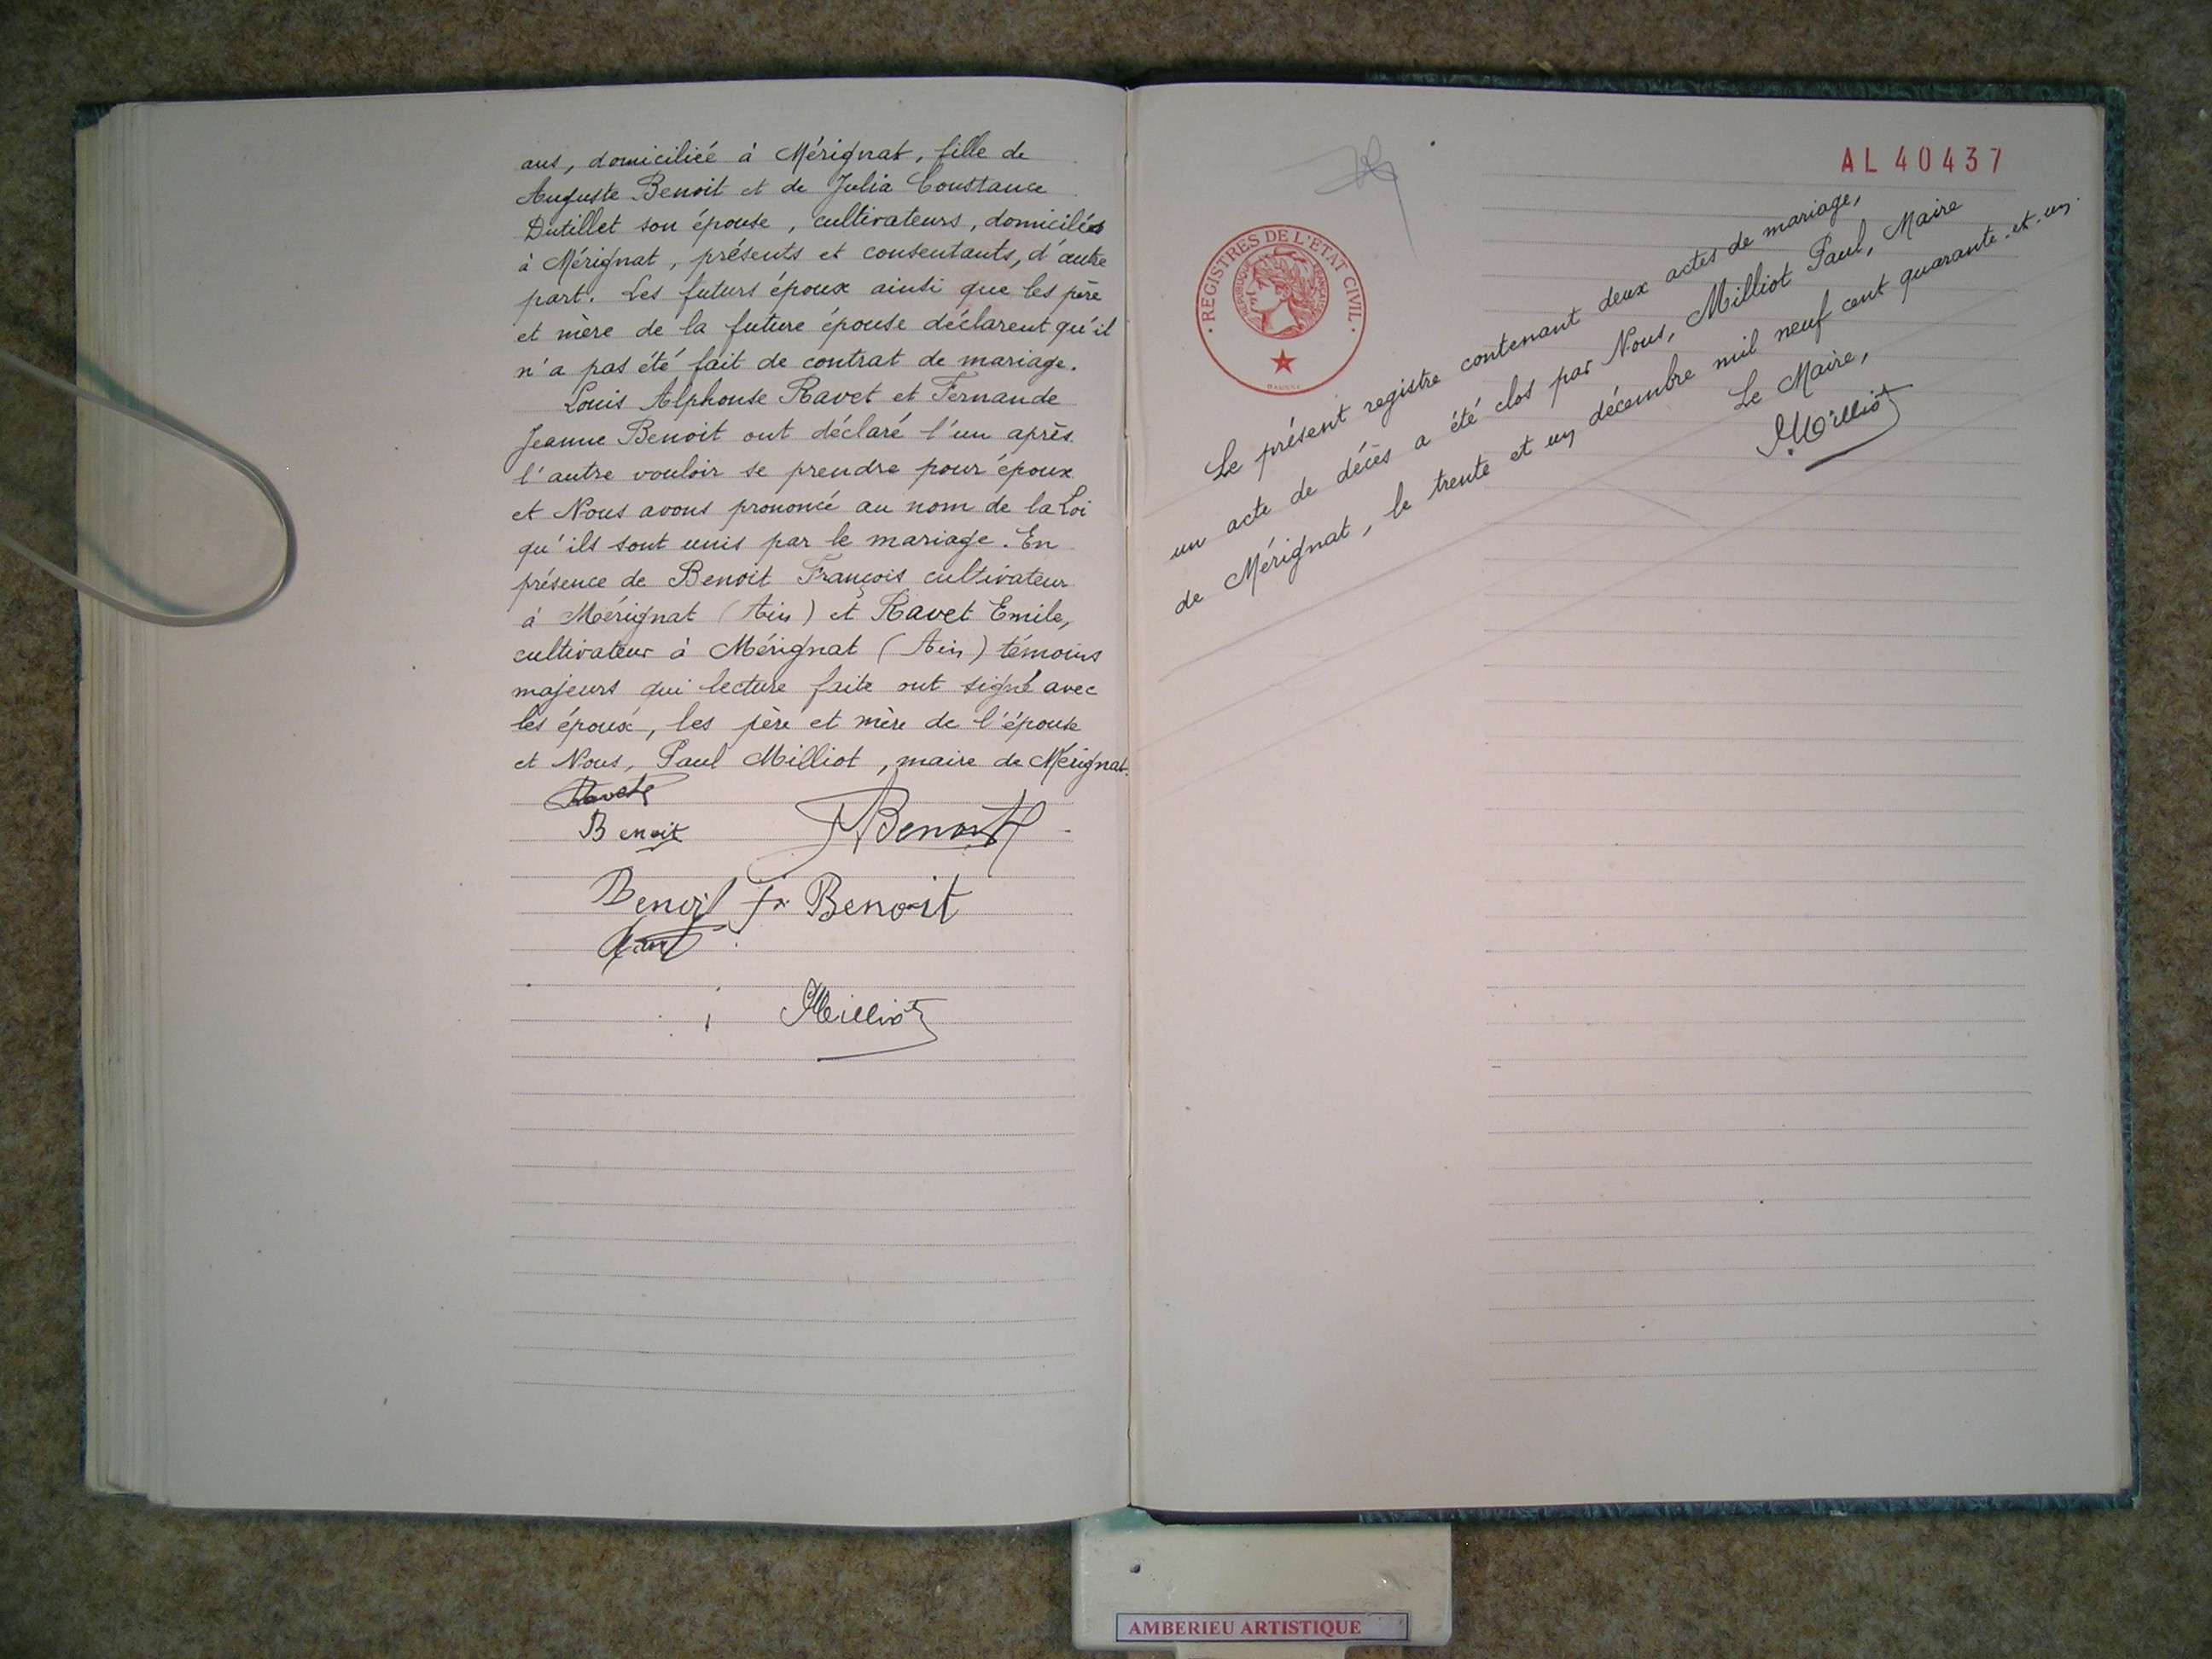 ans, domiciliée à Mérignat, fille de
Auguste Benoit et de Julia Constance
Dutillet son épouse, cultivateurs, domiciliés
à Mérignat, présents et consentants, d'autre
part. Les futurs époux ainsi que les père
et mère de la future épouse déclarent qu'il
n'a pas été fait de contrat de mariage.
Louis Alphonse Ravet et Fernande
Jeanne Benoit ont déclaré l'un après
l'autre vouloir se prendre pour époux
et Nous avons prononcé au nom de la Loi
qu'ils sont unis par le mariage. En
présence de Benoit François cultivateur
à Mérignat (Ain) et Ravet Emile,
cultivateur à Mérignat (Ain) témoins
majeurs qui lecture faite ont signé avec
les époux, les père et mère de l'épouse
et Nous, Paul Milliot, maire de Mérignat.
Ravet
Benoit
Benoit
Benoit Fs Benoit
Milliot
AL 40437
· REGISTRES DE L'ETAT CIVIL ·
REPUBLIQUE FRANÇAISE
Le présent registre contenant deux actes de mariage,
un acte de décès a été clos par Nous, Milliot Paul, Maire
de Mérignat, le trente et un décembre mil neuf cent quarante-et-un.
Le Maire,
Milliot
AMBERIEU ARTISTIQUE